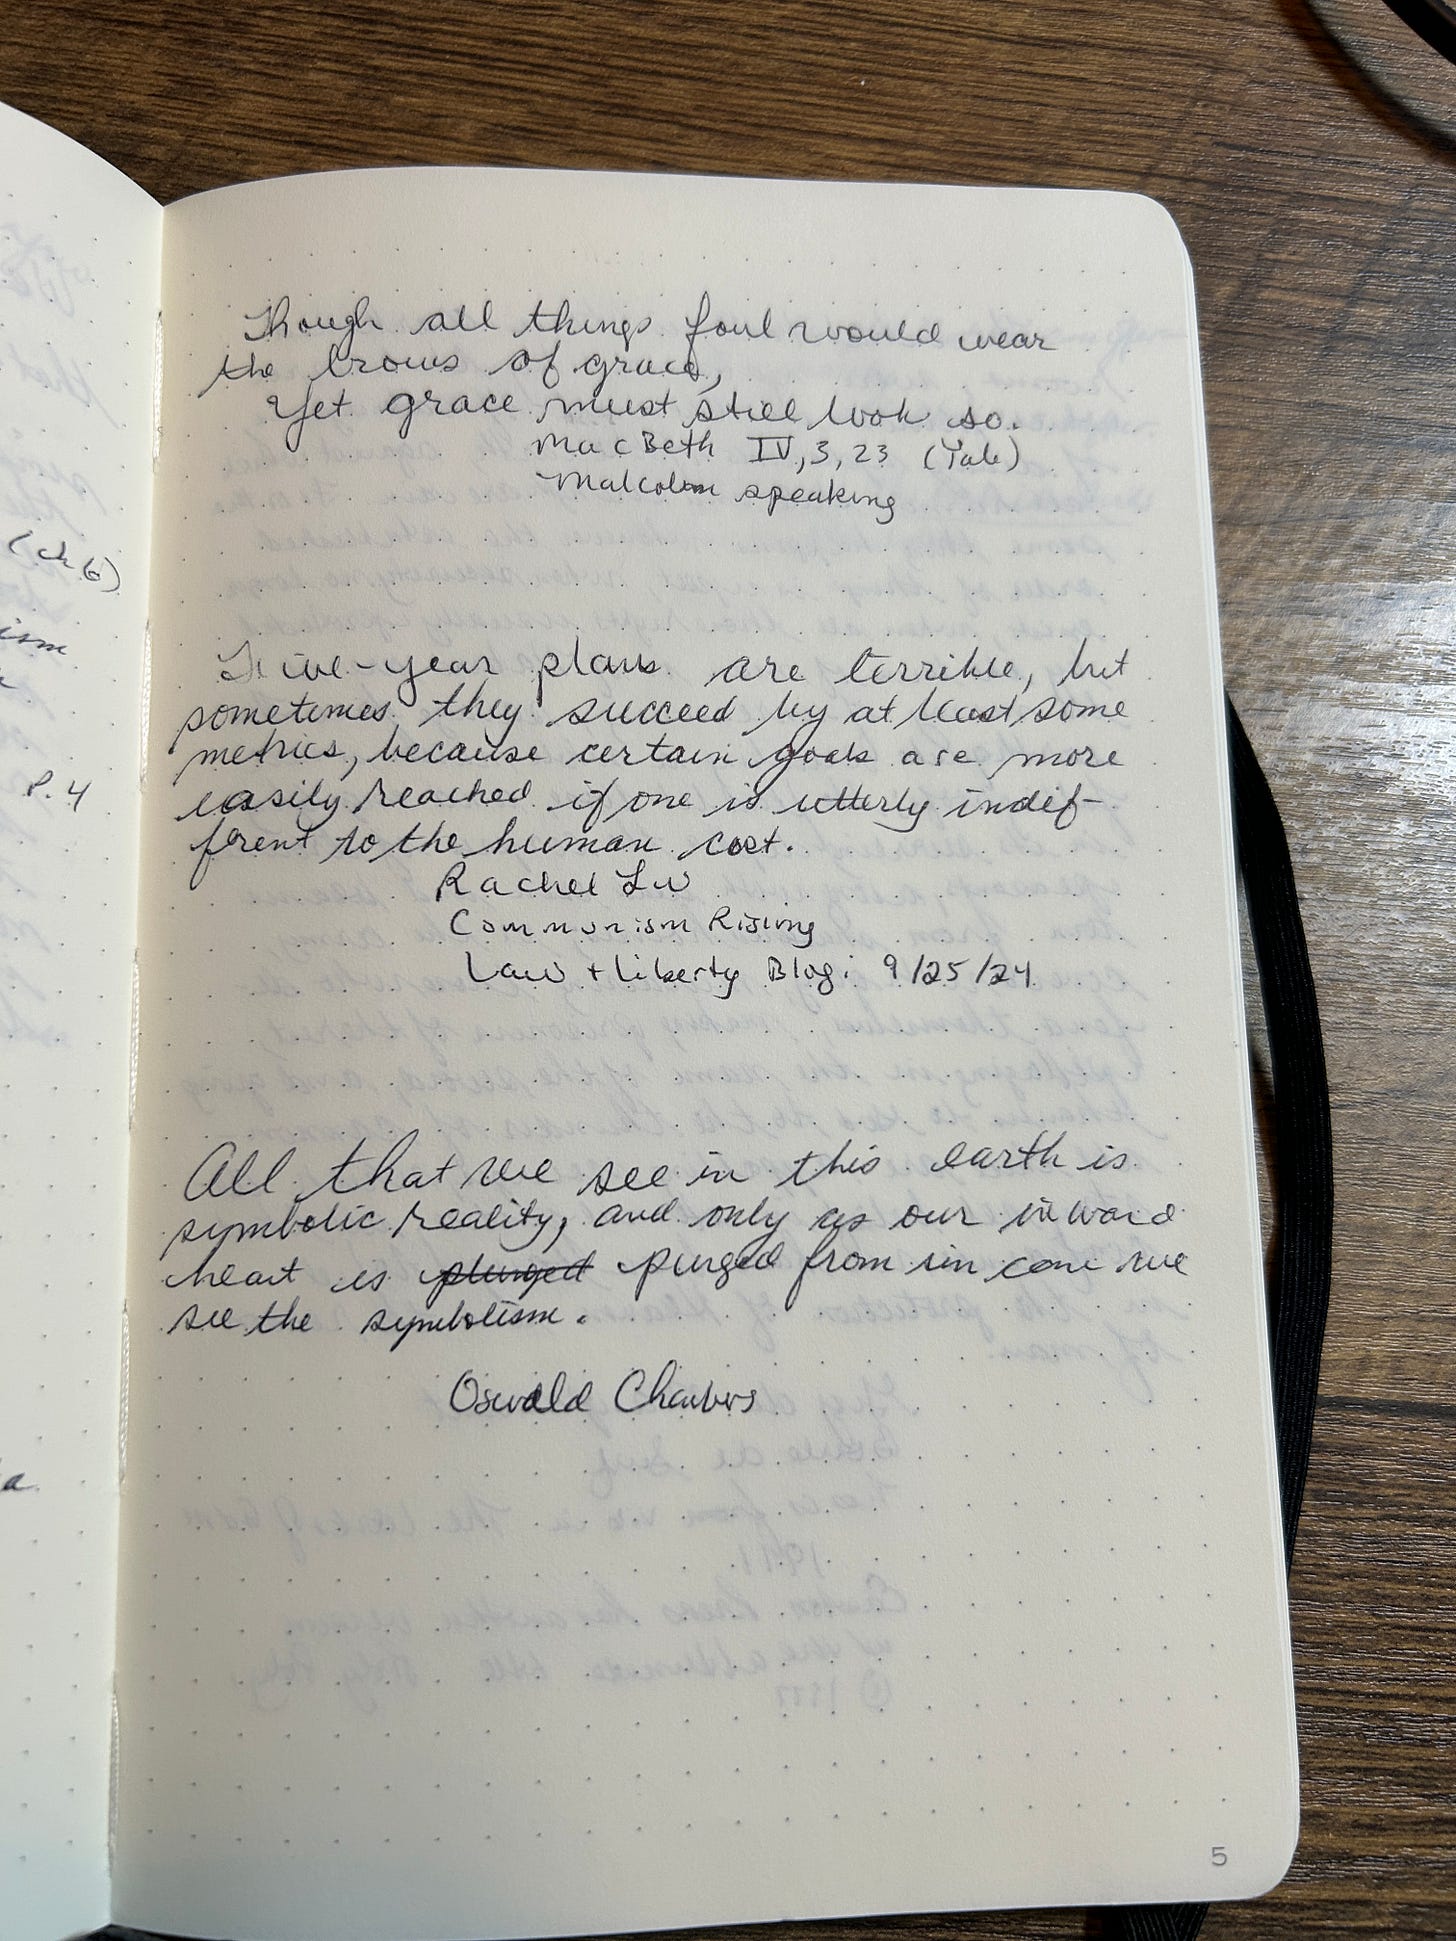 (ch 6)
ism
P. 4
a
Though all things foul would wear
the brows of grace,
Yet grace must still look so.
MacBeth IV, 3, 23 (Yale)
Malcolm speaking
Five-year plans are terrible, but
sometimes they succeed by at least some
metrics, because certain goals are more
easily reached if one is utterly indif-
ferent to the human cost.
Rachel Lu
Communism Rising
Law + Liberty Blog: 9/25/24
All that we see in this earth is
symbolic reality, and only as our inward
heart is plunged purged from sin can we
see the symbolism.
Oswald Chambers
5